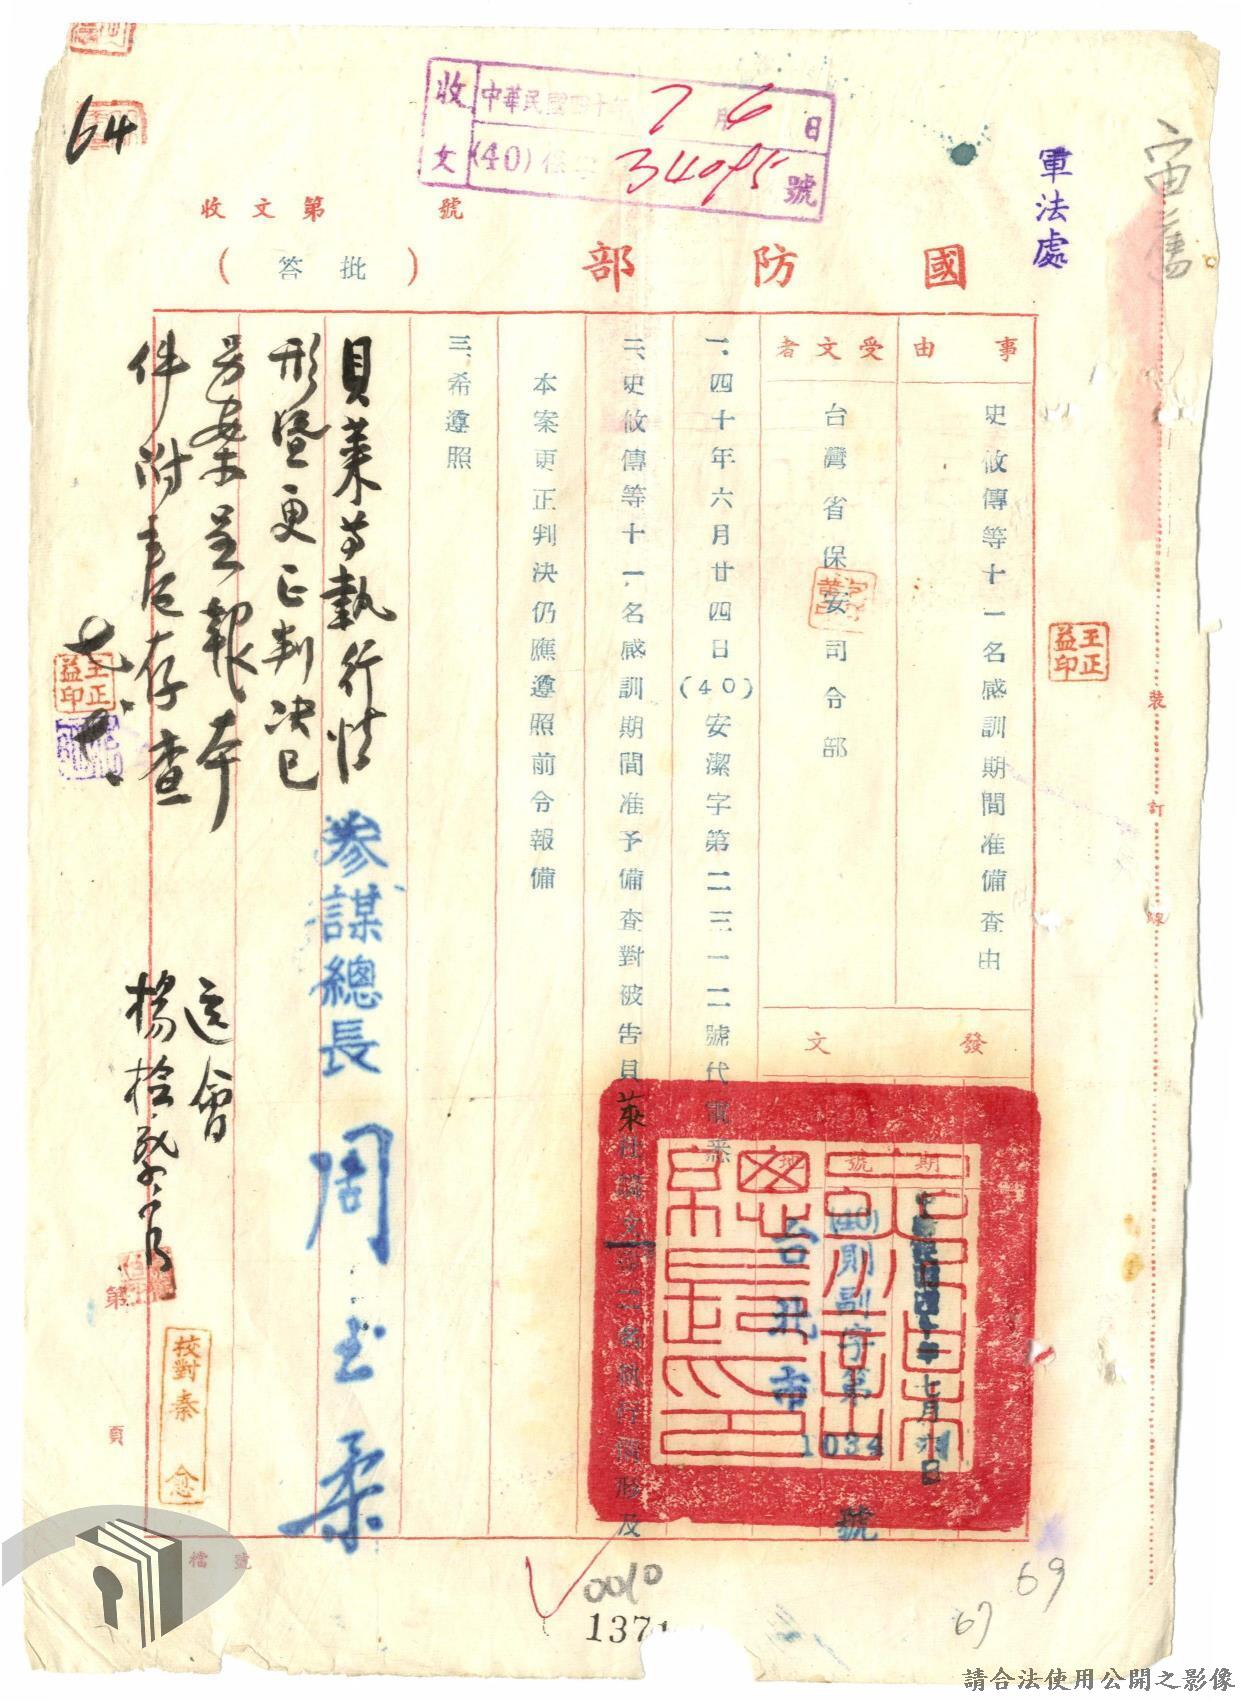 收文
中華民國四十年7月6日
(40)保 34095號
64
軍法處
收文第 號
國防部
(批答)
事由
史攸傳等十一名感訓期間准備查由
受文者
台灣省保安司令部
發文
期
號
地
七月 日
(40)則副字第1034號
台北市
一、四十年六月廿四日(40)安潔字第二三一一二號代電悉
二、史攸傳等十一名感訓期間准予備查對被告貝萊杜 文 二名執行情形及
本案更正判決仍應遵照前令報備
三、希遵照
參謀總長 周至柔
貝萊等執行情
形暨更正判決已
另案呈報本
件附卷存查
送會
楊檢察官
王正益印
王正益印
校對秦 念
第 頁
裝訂線
檔號
0010
1371
67
69
請合法使用公開之影像